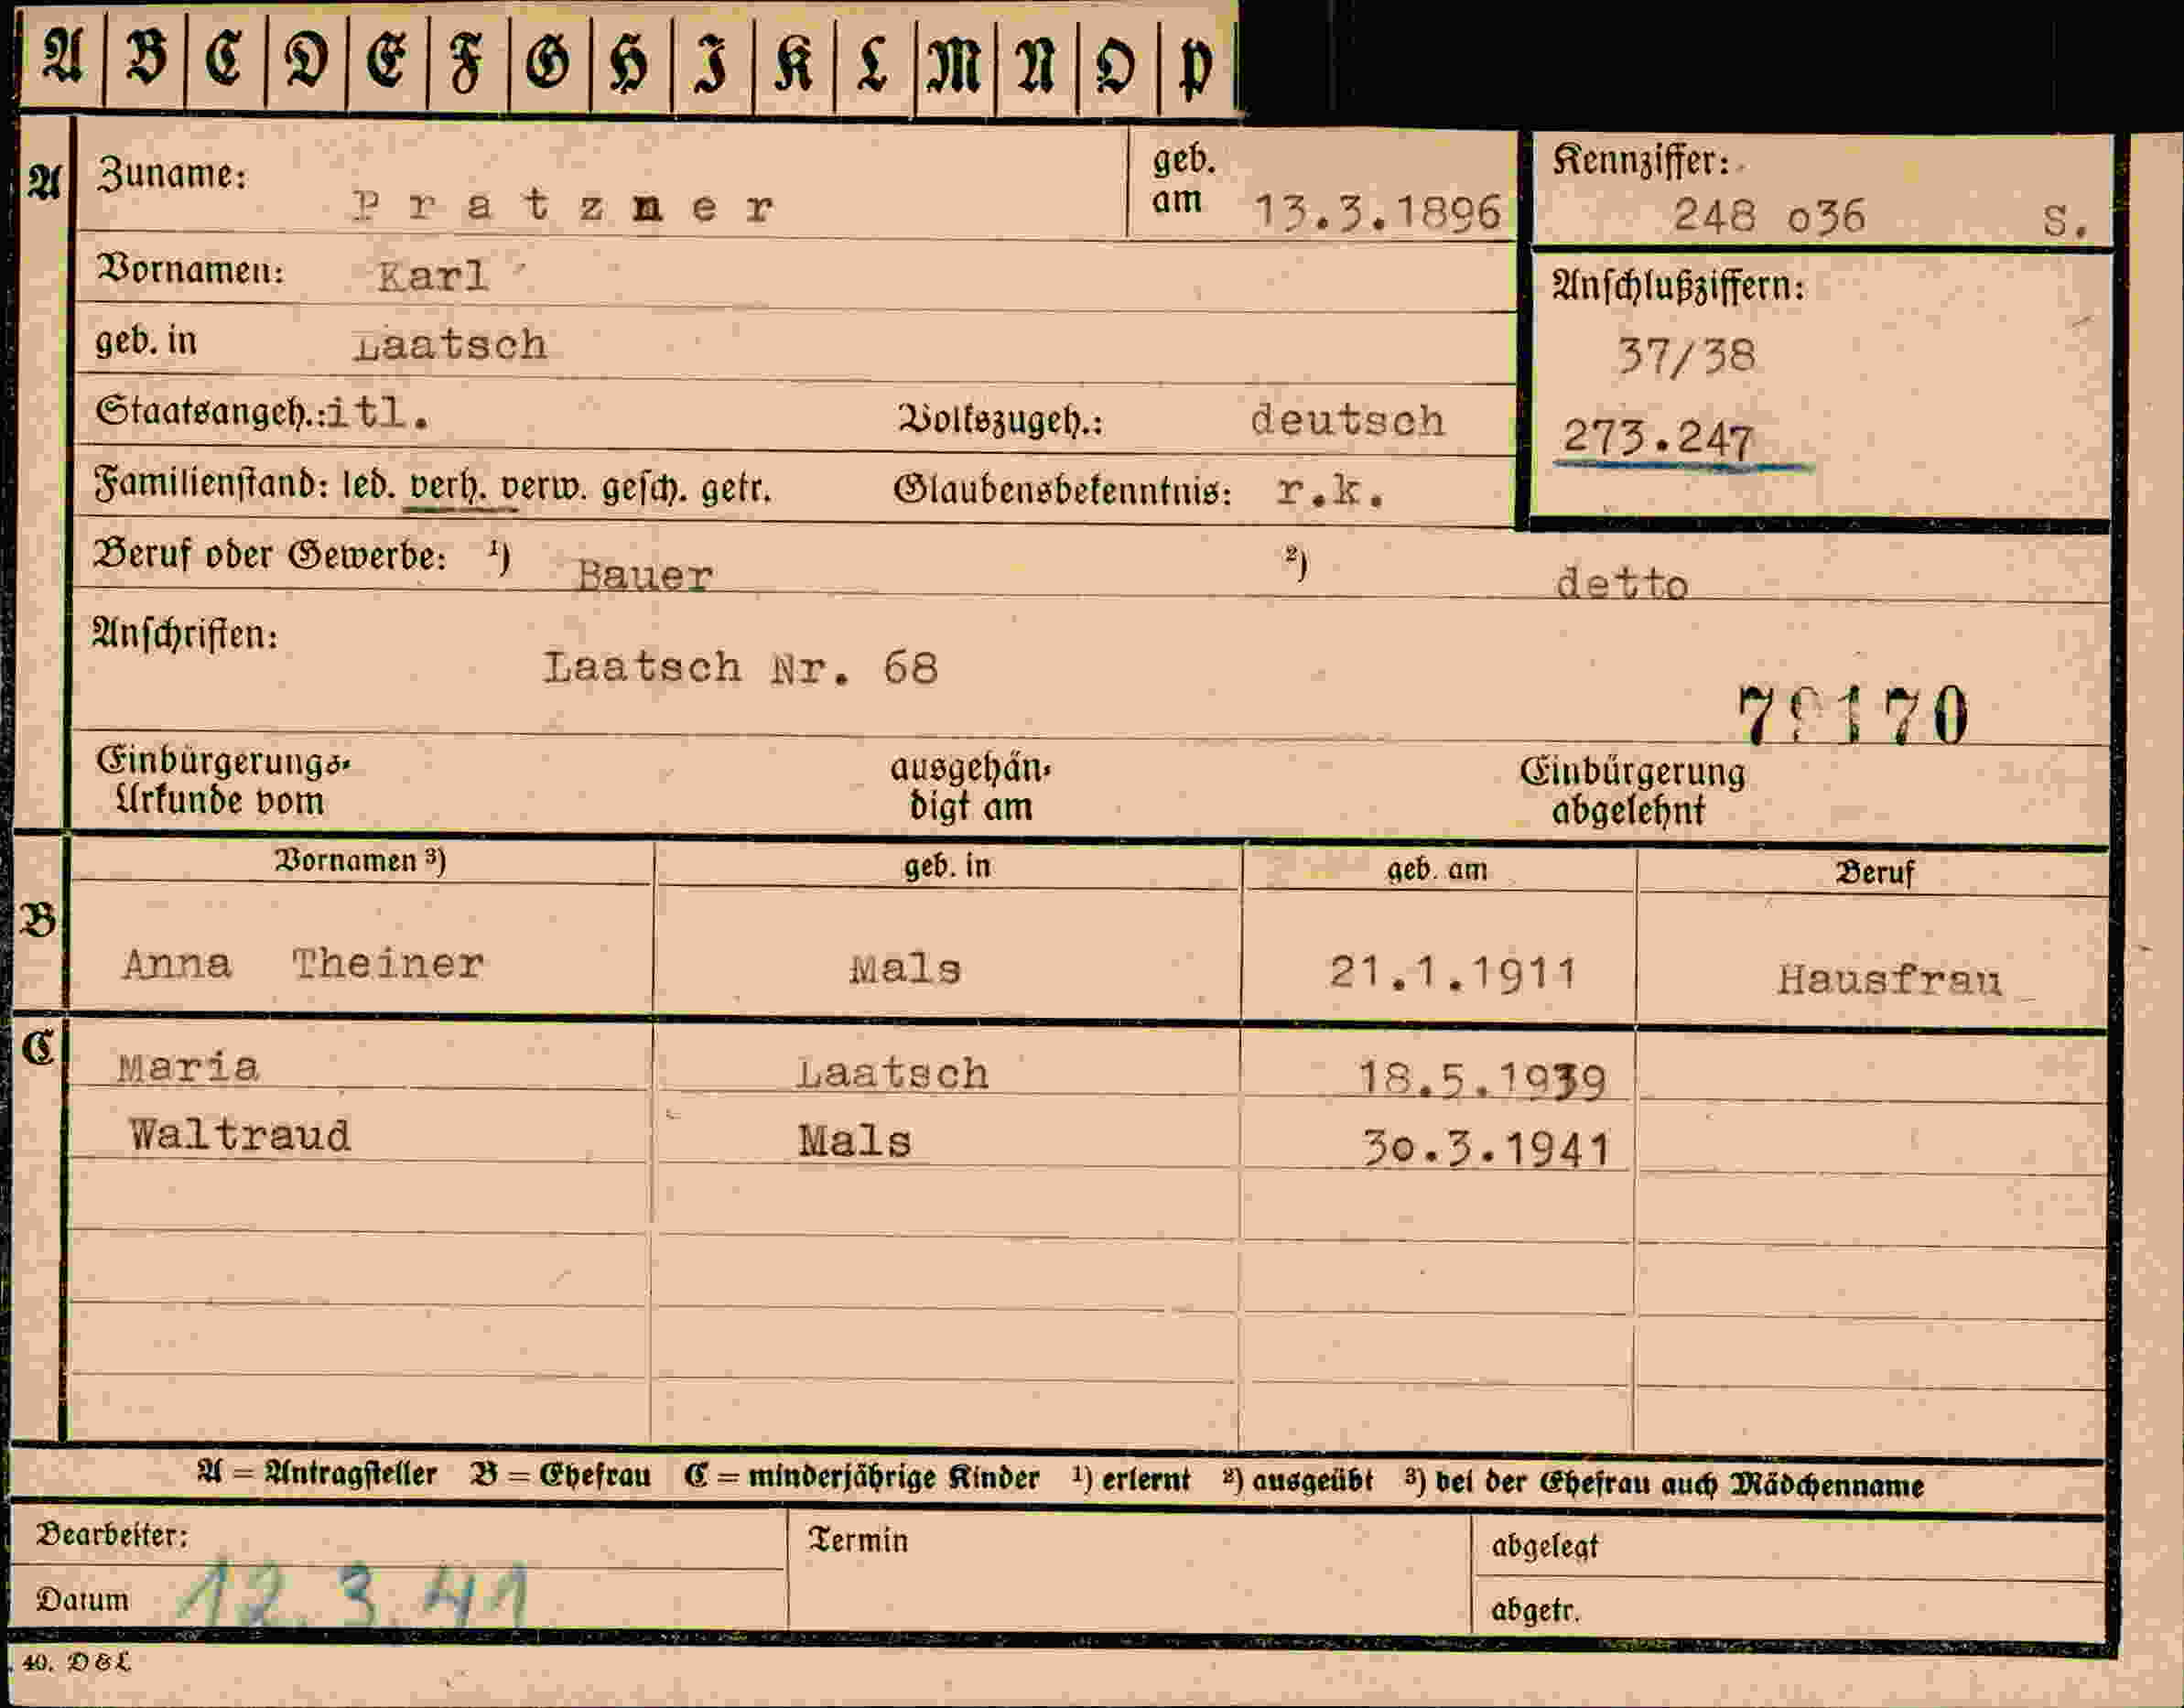 A B C D E F G H I K L M N O P
A Zuname: Pratzner geb. am 13.3.1896 Kennziffer: 248 o36 S.
Vornamen: Karl Anschlußziffern:
geb. in Laatsch 37/38
Staatsangeh.: itl. Volkszugeh.: deutsch 273.247
Familienstand: led. verh. verw. gesch. getr. Glaubensbekenntnis: r.k.
Beruf oder Gewerbe: ¹) Bauer ²) detto
Anschriften:
Laatsch Nr. 68
Einbürgerungs- ausgehän- Einbürgerung
Urkunde vom digt am abgelehnt
Vornamen ³) geb. in geb. am Beruf
B Anna Theiner Mals 21.1.1911 Hausfrau
C Maria Laatsch 18.5.1939
Waltraud Mals 3o.3.1941
A = Antragsteller B = Ehefrau C = minderjährige Kinder ¹) erlernt ²) ausgeübt ³) bei der Ehefrau auch Mädchenname
Bearbeiter: Termin abgelegt
Datum 12.3.41 abgetr.
40. D&L